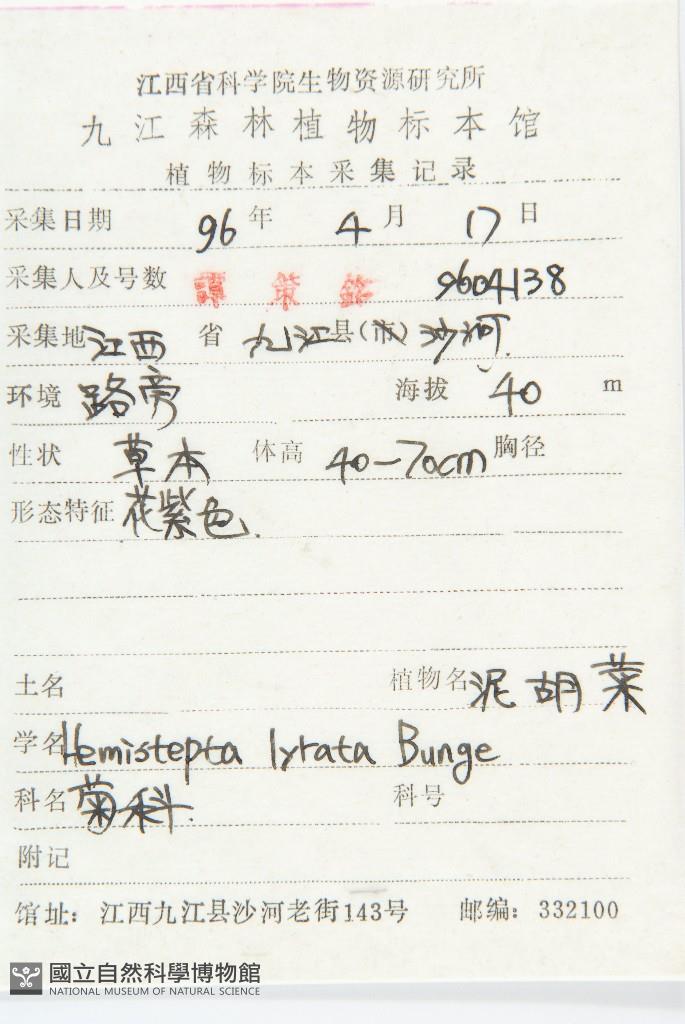 江西省科学院生物资源研究所
九江森林植物标本馆
植物标本采集记录
采集日期 96 年 4 月 17 日
采集人及号数 谭策铭 9604138
采集地 江西 省 九江 县(市) 沙河
环境 路旁 海拔 40 m
性状 草本 体高 40-70cm 胸径
形态特征 花紫色.
土名 植物名 泥胡菜
学名 Hemistepta lyrata Bunge
科名 菊科. 科号
附记
馆址: 江西九江县沙河老街143号 邮编: 332100
國立自然科學博物館
NATIONAL MUSEUM OF NATURAL SCIENCE